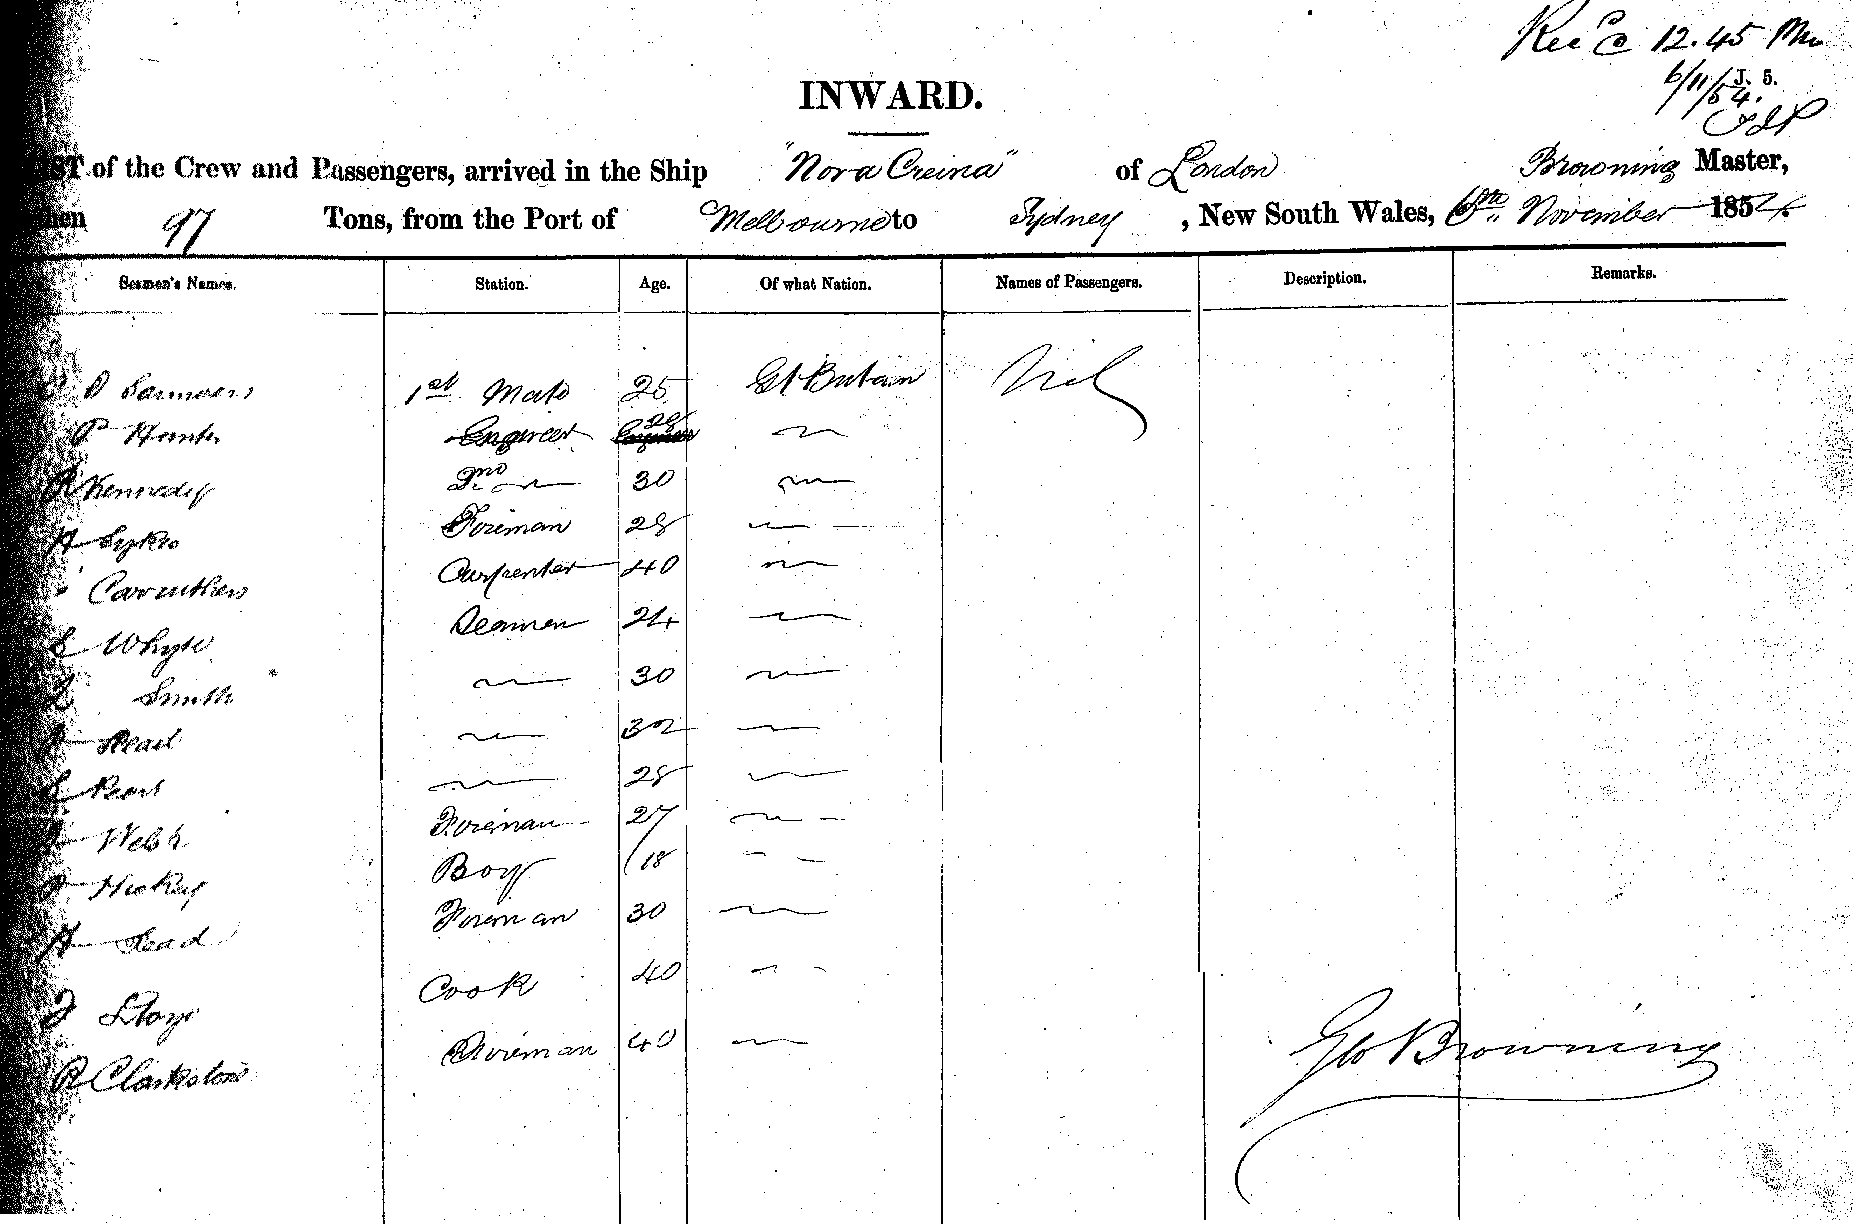 Rec 12.45 Pm
6/11/54. J. 5.
INWARD.
of the Crew and Passengers, arrived in the Ship "Nora Creina" of London Browning Master,
97 Tons, from the Port of Melbourne to Sydney , New South Wales, 6th November 1854
Seamen's Names. Station. Age. Of what Nation. Names of Passengers. Description. Remarks.
1st Mate 25 Gt Britain Nil
P Hunter Engineer 28 〃
Kennedy 2nd 〃 30 〃
H Sykes Fireman 28 〃
Carruthers Carpenter 40 〃
E Whyte Seaman 24 〃
Smith 〃 30 〃
Read 〃 32 〃
E 〃 28 〃
Welsh Fireman 27 〃
Hickey Boy 18 〃
H Read Foreman 30 〃
Cook 40 〃
R Clarkston Fireman 40 〃
Geo Browning